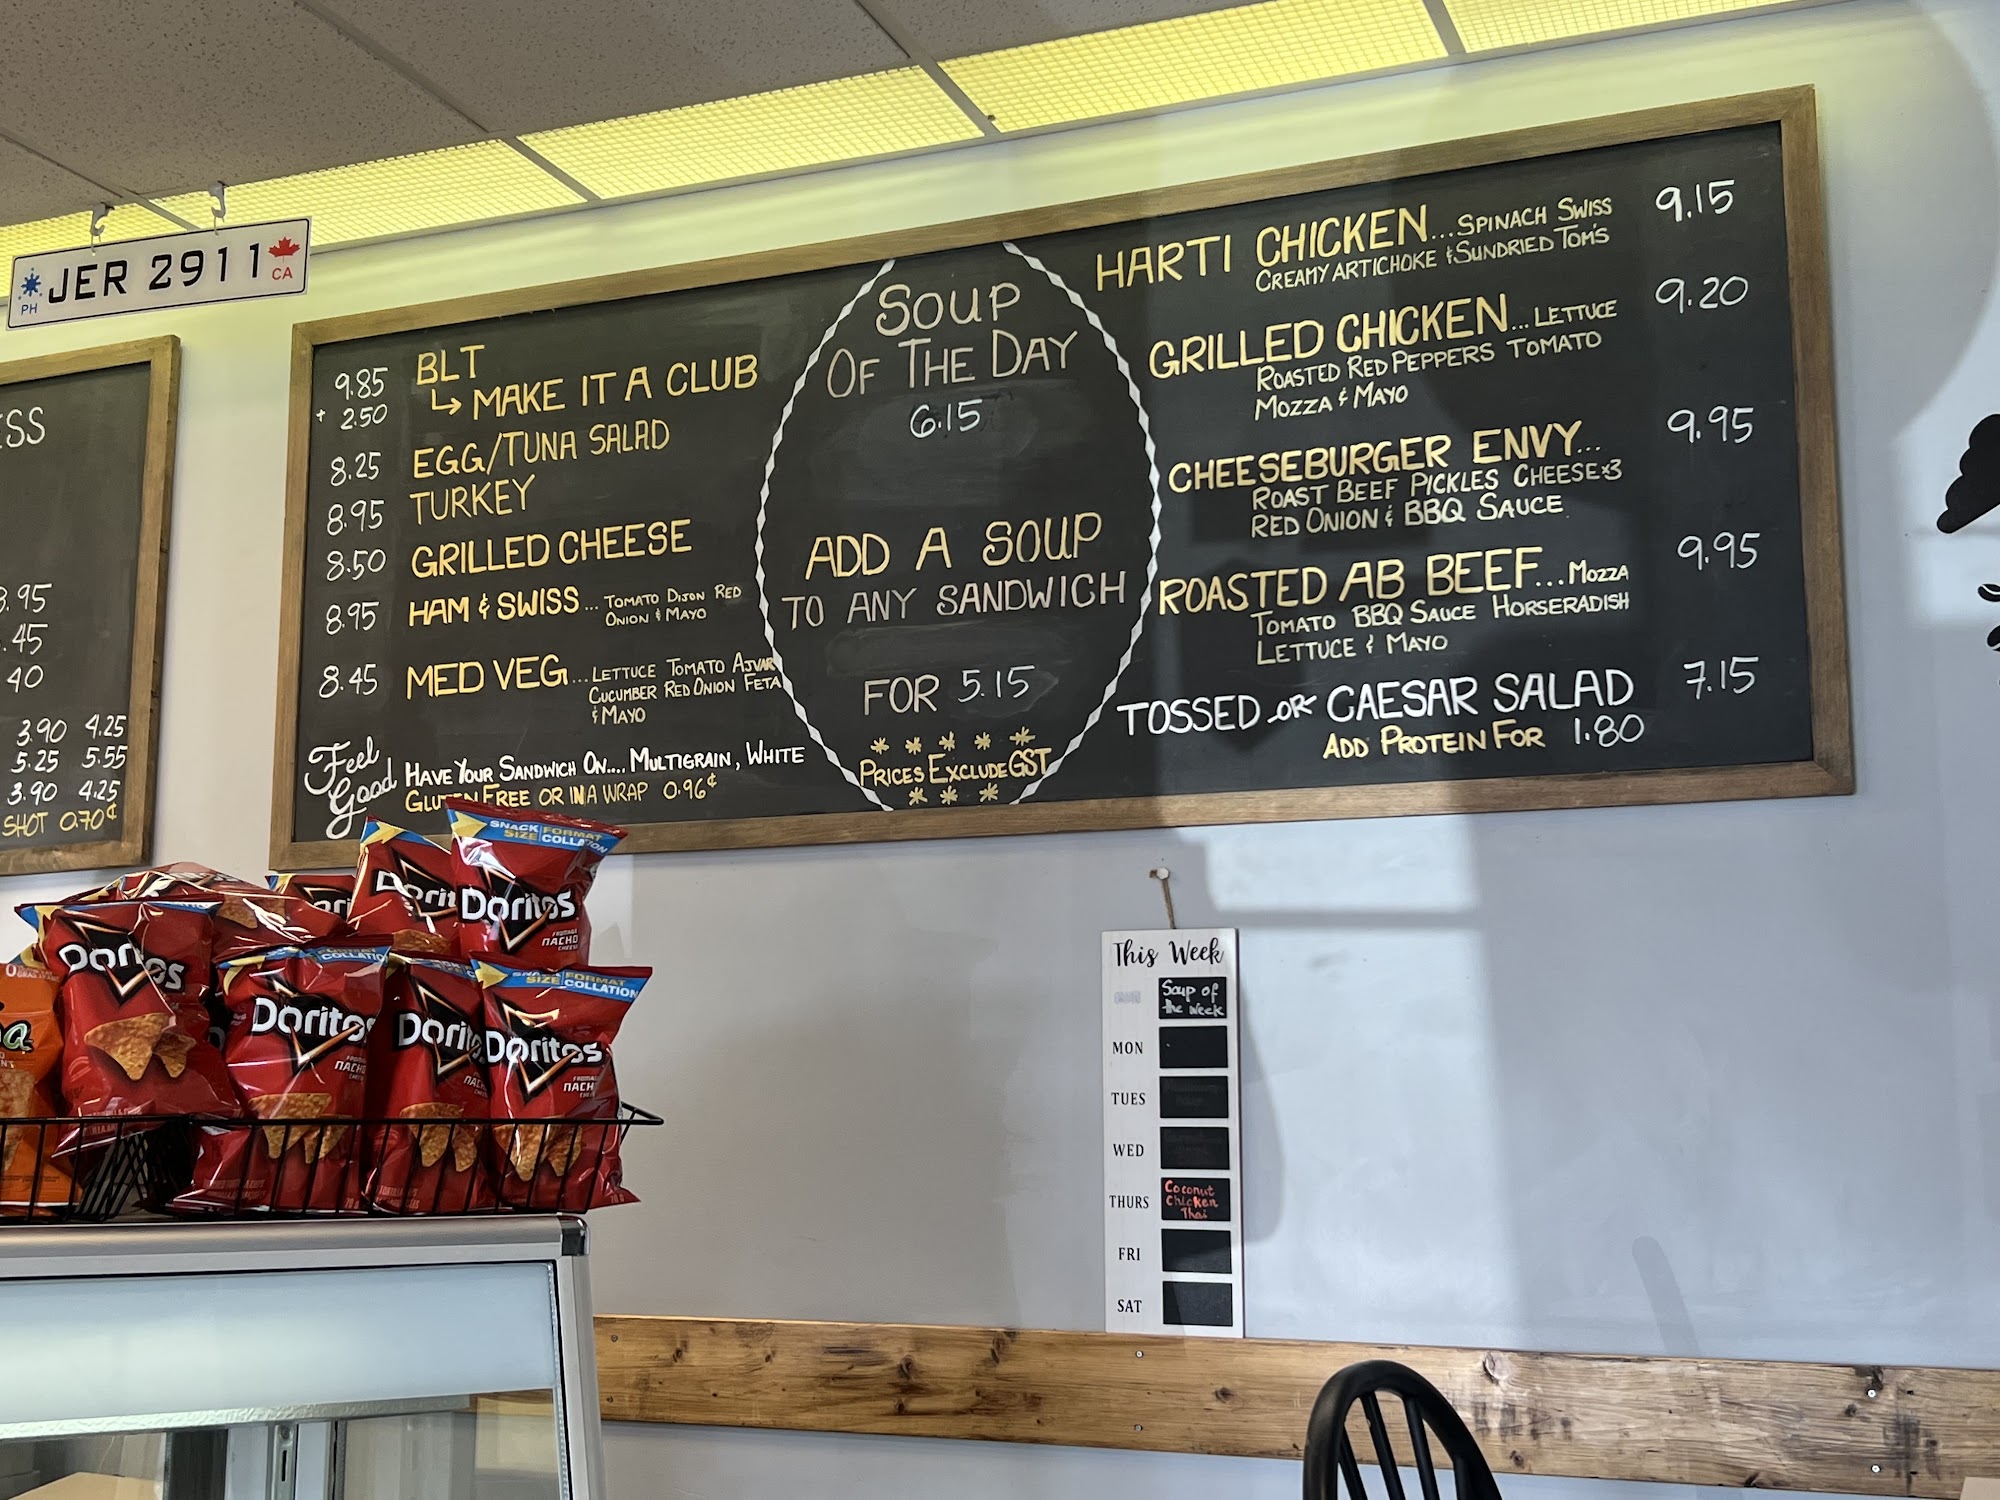 JER 2911
PH
CA
3.90 4.25
5.25 5.55
3.90 4.25
SHOT 0.70¢
9.85 BLT
+ 2.50 ↳ MAKE IT A CLUB
8.25 EGG/TUNA SALAD
8.95 TURKEY
8.50 GRILLED CHEESE
8.95 HAM & SWISS ... TOMATO DIJON RED
ONION & MAYO
8.45 MED VEG ... LETTUCE TOMATO AJVAR
CUCUMBER RED ONION FETA
& MAYO
Feel
Good
HAVE YOUR SANDWICH ON.... MULTIGRAIN, WHITE
GLUTEN FREE OR IN A WRAP 0.96¢
SOUP
OF THE DAY
6.15
ADD A SOUP
TO ANY SANDWICH
FOR 5.15
* * * * *
PRICES EXCLUDE GST
* * *
HARTI CHICKEN ... SPINACH SWISS 9.15
CREAMY ARTICHOKE & SUNDRIED TOM'S
GRILLED CHICKEN ... LETTUCE 9.20
ROASTED RED PEPPERS TOMATO
MOZZA & MAYO
CHEESEBURGER ENVY... 9.95
ROAST BEEF PICKLES CHEESE x3
RED ONION & BBQ SAUCE
ROASTED AB BEEF... MOZZA 9.95
TOMATO BBQ SAUCE HORSERADISH
LETTUCE & MAYO
TOSSED OR CAESAR SALAD 7.15
ADD PROTEIN FOR 1.80
This Week
Soup of
the week
MON
TUES
WED
THURS Coconut
Chicken
Thai
FRI
SAT
SNACK SIZE FORMAT COLLATION
Doritos
FROMAGE
NACHO
CHEESE
Doritos
Doritos
Doritos
NACHO
SNACK SIZE FORMAT COLLATION
Doritos
FROMAGE
NACHO
CHEESE